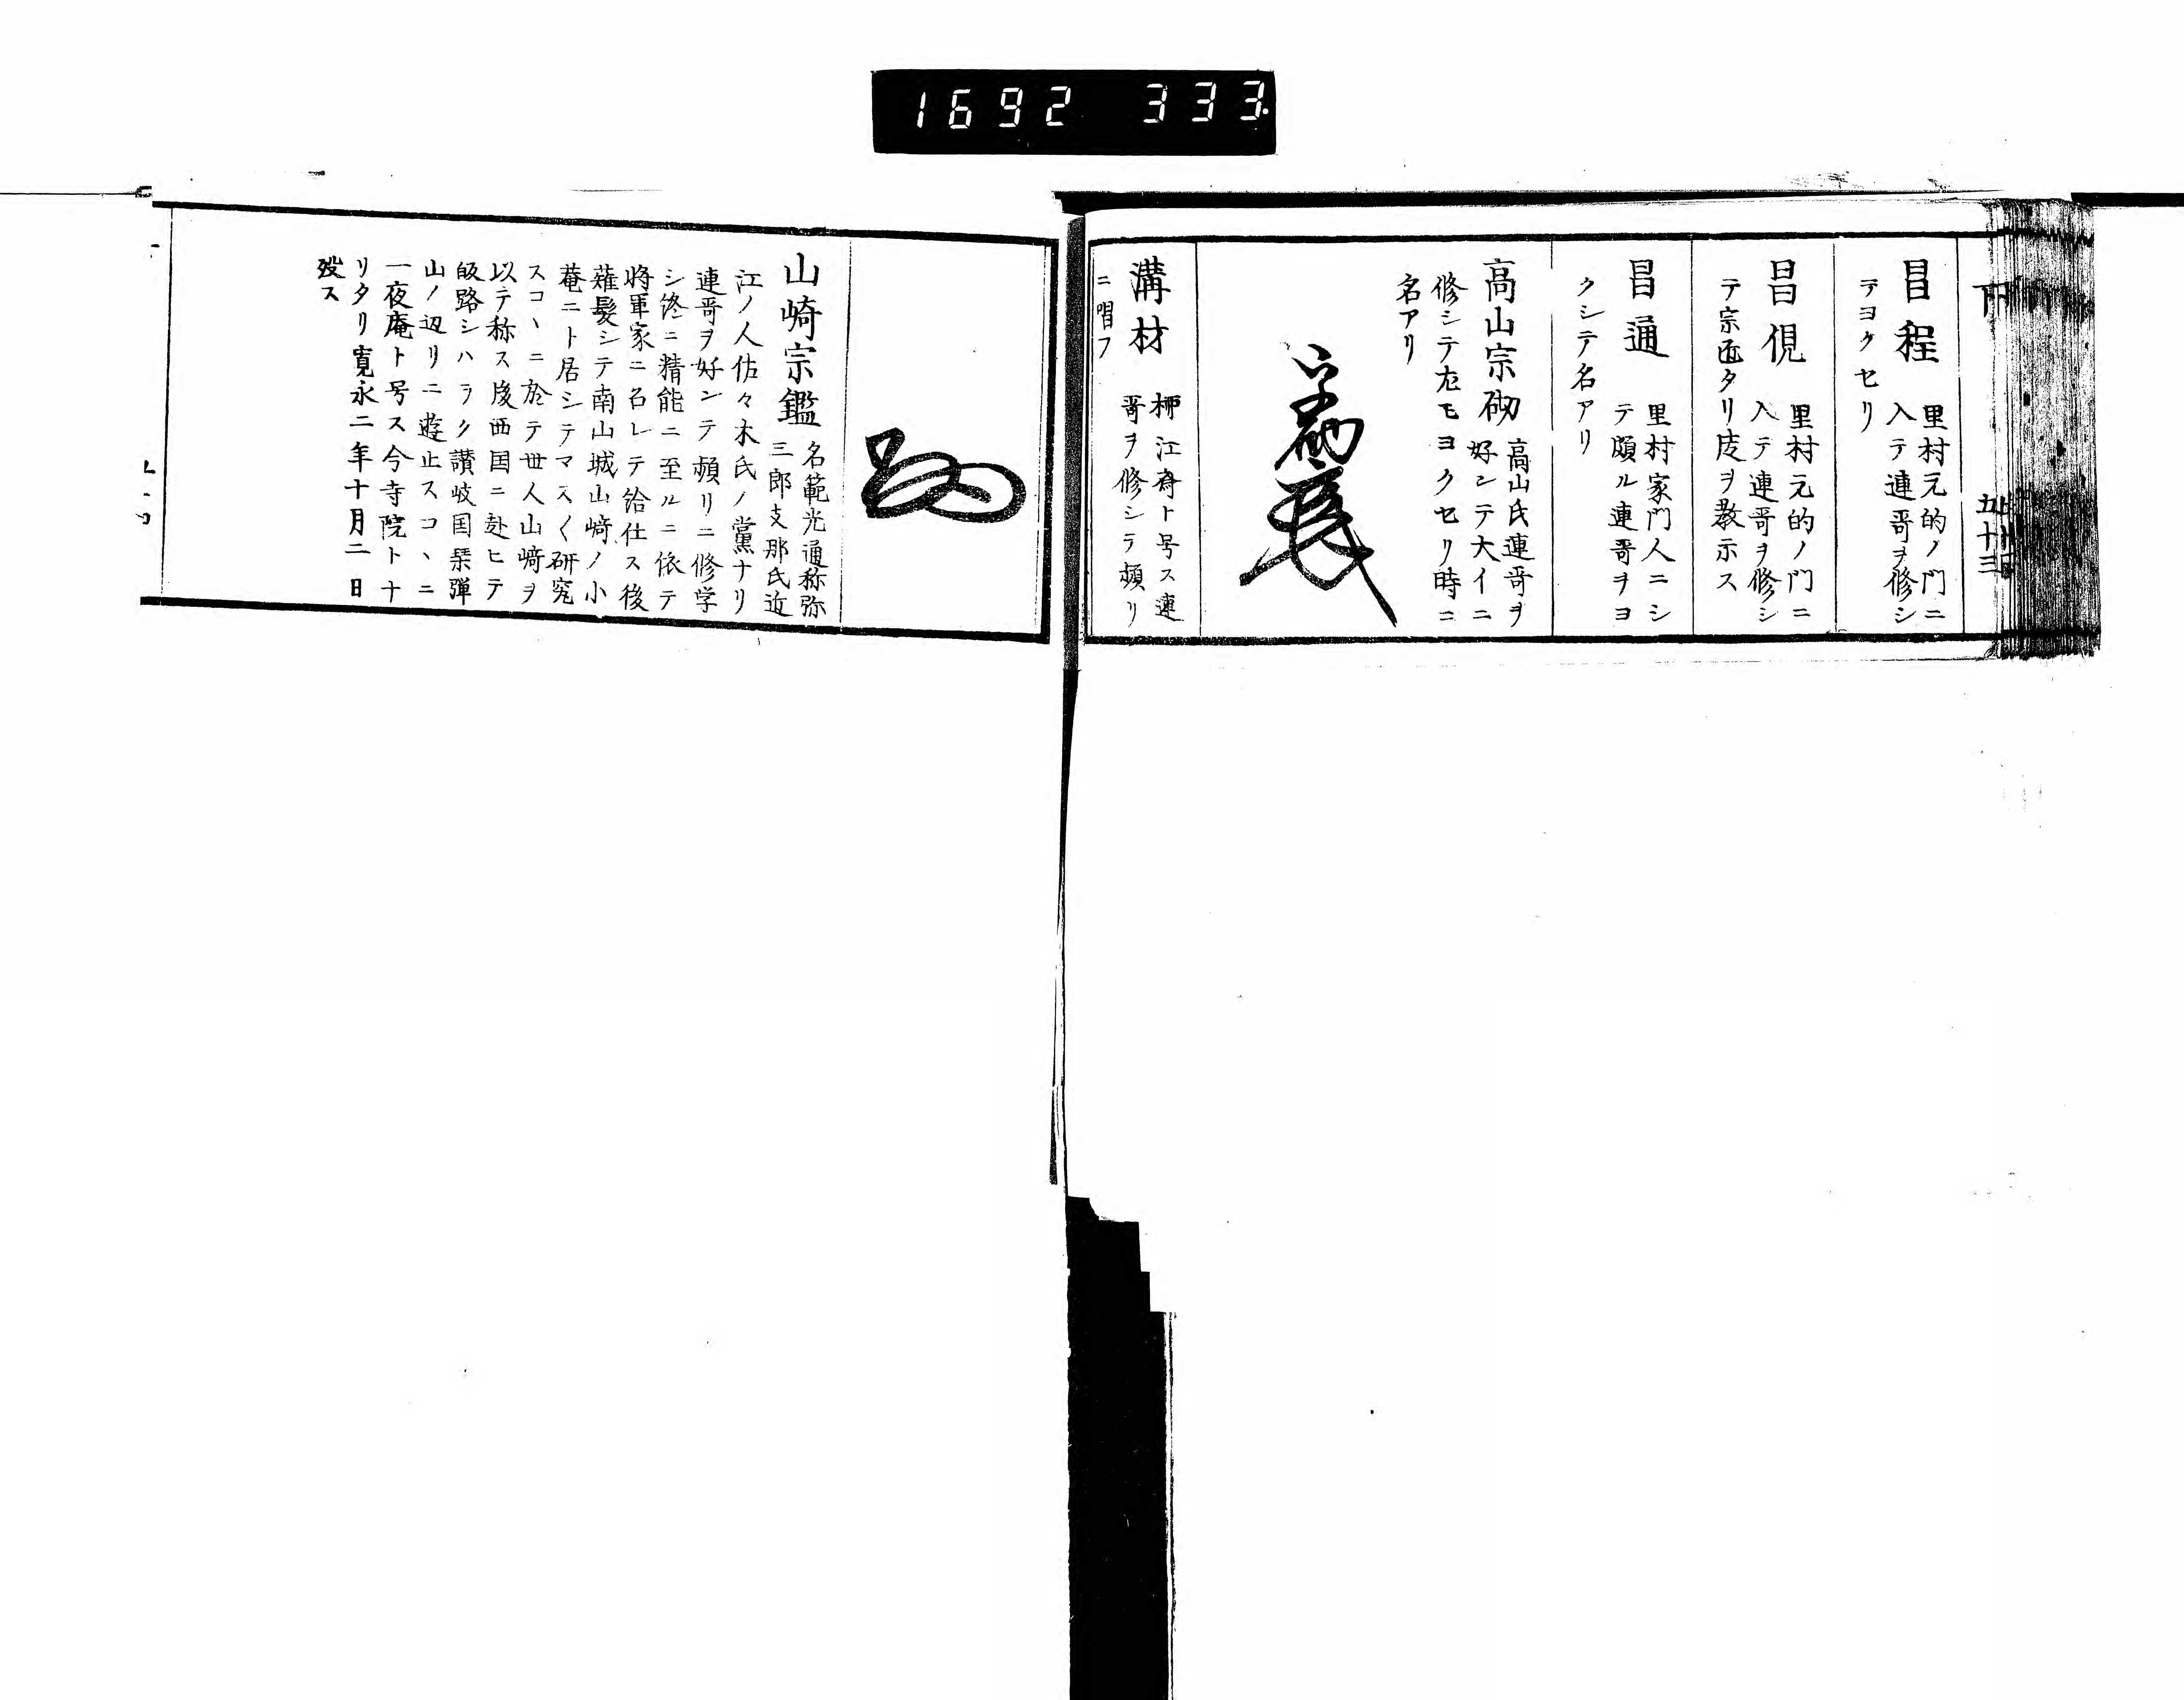 1692 333.
下
五十三
昌程
里村元的ノ門ニ
入テ連哥ヲ修シ
テヨクセリ
昌俔
里村元的ノ門ニ
入テ連哥ヲ修シ
テ宗匠タリ度ヲ教示ス
昌通
里村家門人ニシ
テ頗ル連哥ヲヨ
クシテ名アリ
高山宗砌
高山氏連哥ヲ
好ンテ大イニ
修シテ尤モヨクセリ時ニ
名アリ
溝材
栁江斎ト号ス連
哥ヲ修シテ頻リ
ニ唱フ
山崎宗鑑
名範光通称弥
三郎支那氏近
江ノ人佐々木氏ノ黨ナリ
連哥ヲ好ンテ頻リニ修学
シ終ニ精能ニ至ルニ依テ
将軍家ニ召レテ給仕ス後
薙髪シテ南山城山崎ノ小
菴ニト居シテマス〱研究
スコヽニ於テ世人山崎ヲ
以テ称ス後西国ニ赴ヒテ
皈路シハラク讃岐国琹弾
山ノ辺リニ遊止スコヽニ
一夜庵ト号ス今寺院トナ
リタリ寛永二年十月二日
歿ス